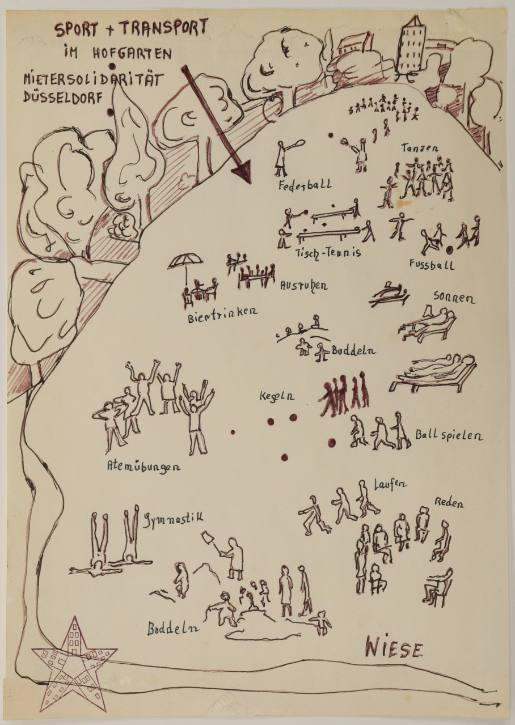 SPORT + TRANSPORT
IM HOFGARTEN
MIETERSOLIDARITÄT
DÜSSELDORF
Tanzen
Federball
Tisch-Tennis
Fussball
Ausruhen
Sonnen
Biertrinken
Buddeln
Kegeln
Ballspielen
Atemübungen
Laufen
Reden
Gymnastik
Buddeln
WIESE